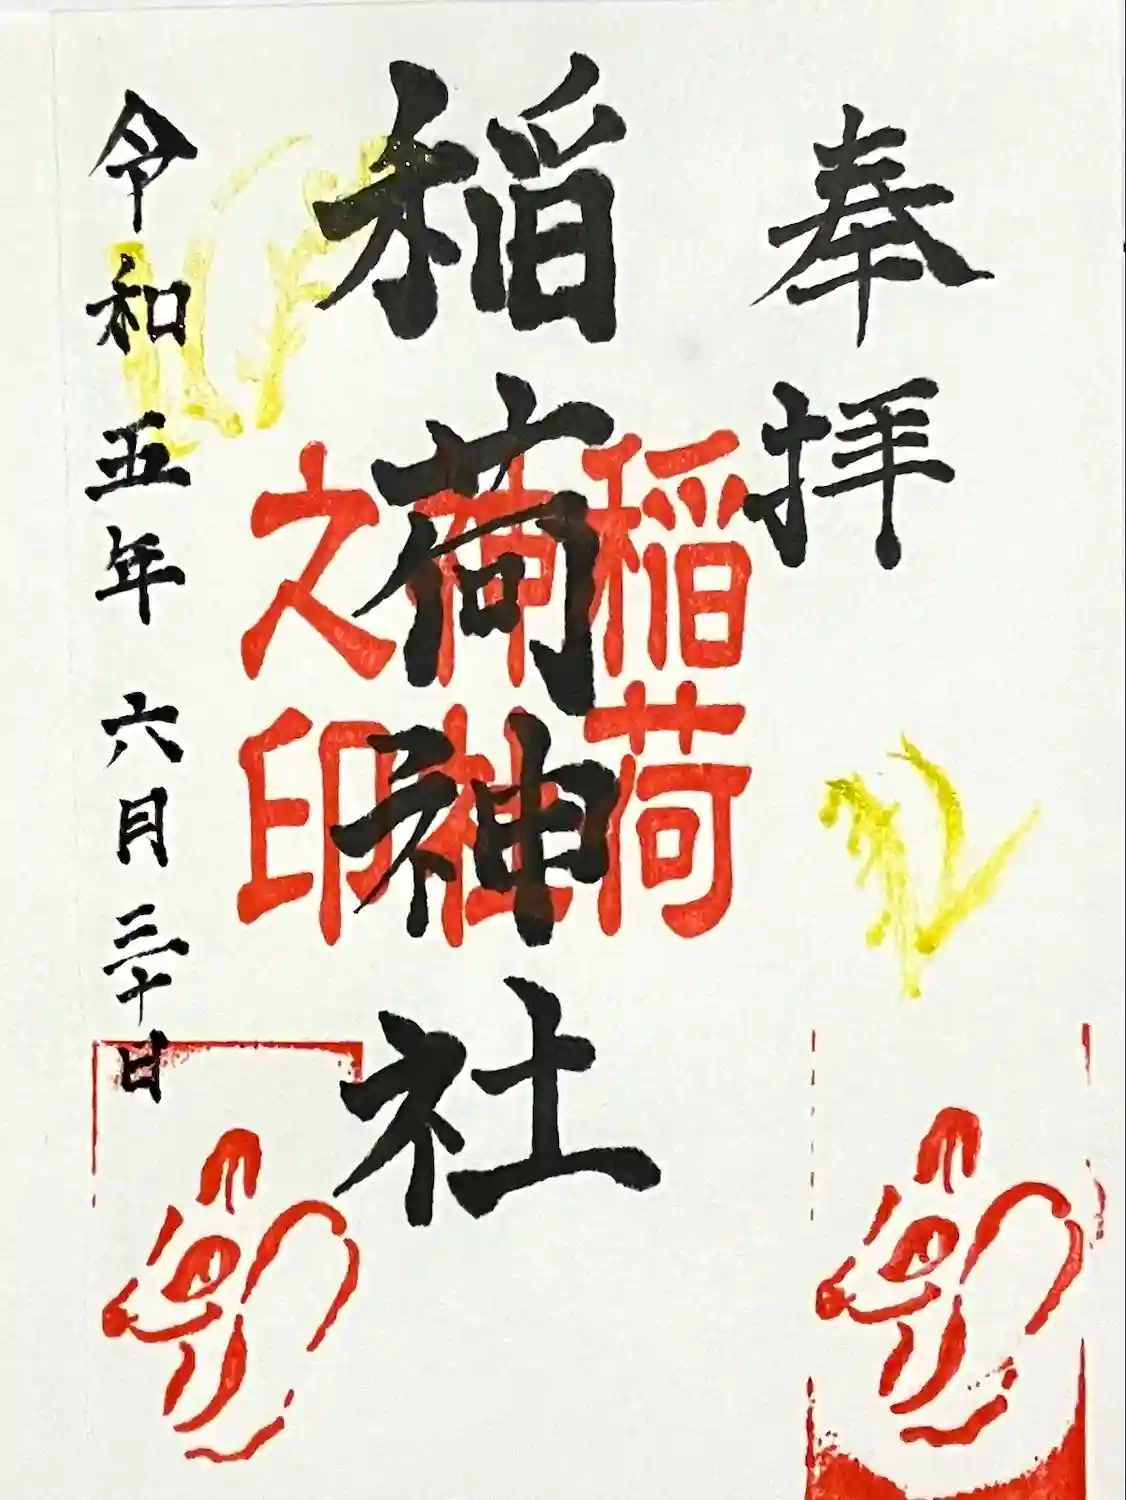 奉拝
稲荷神社
稲荷
神社
之印
令和五年六月三十日